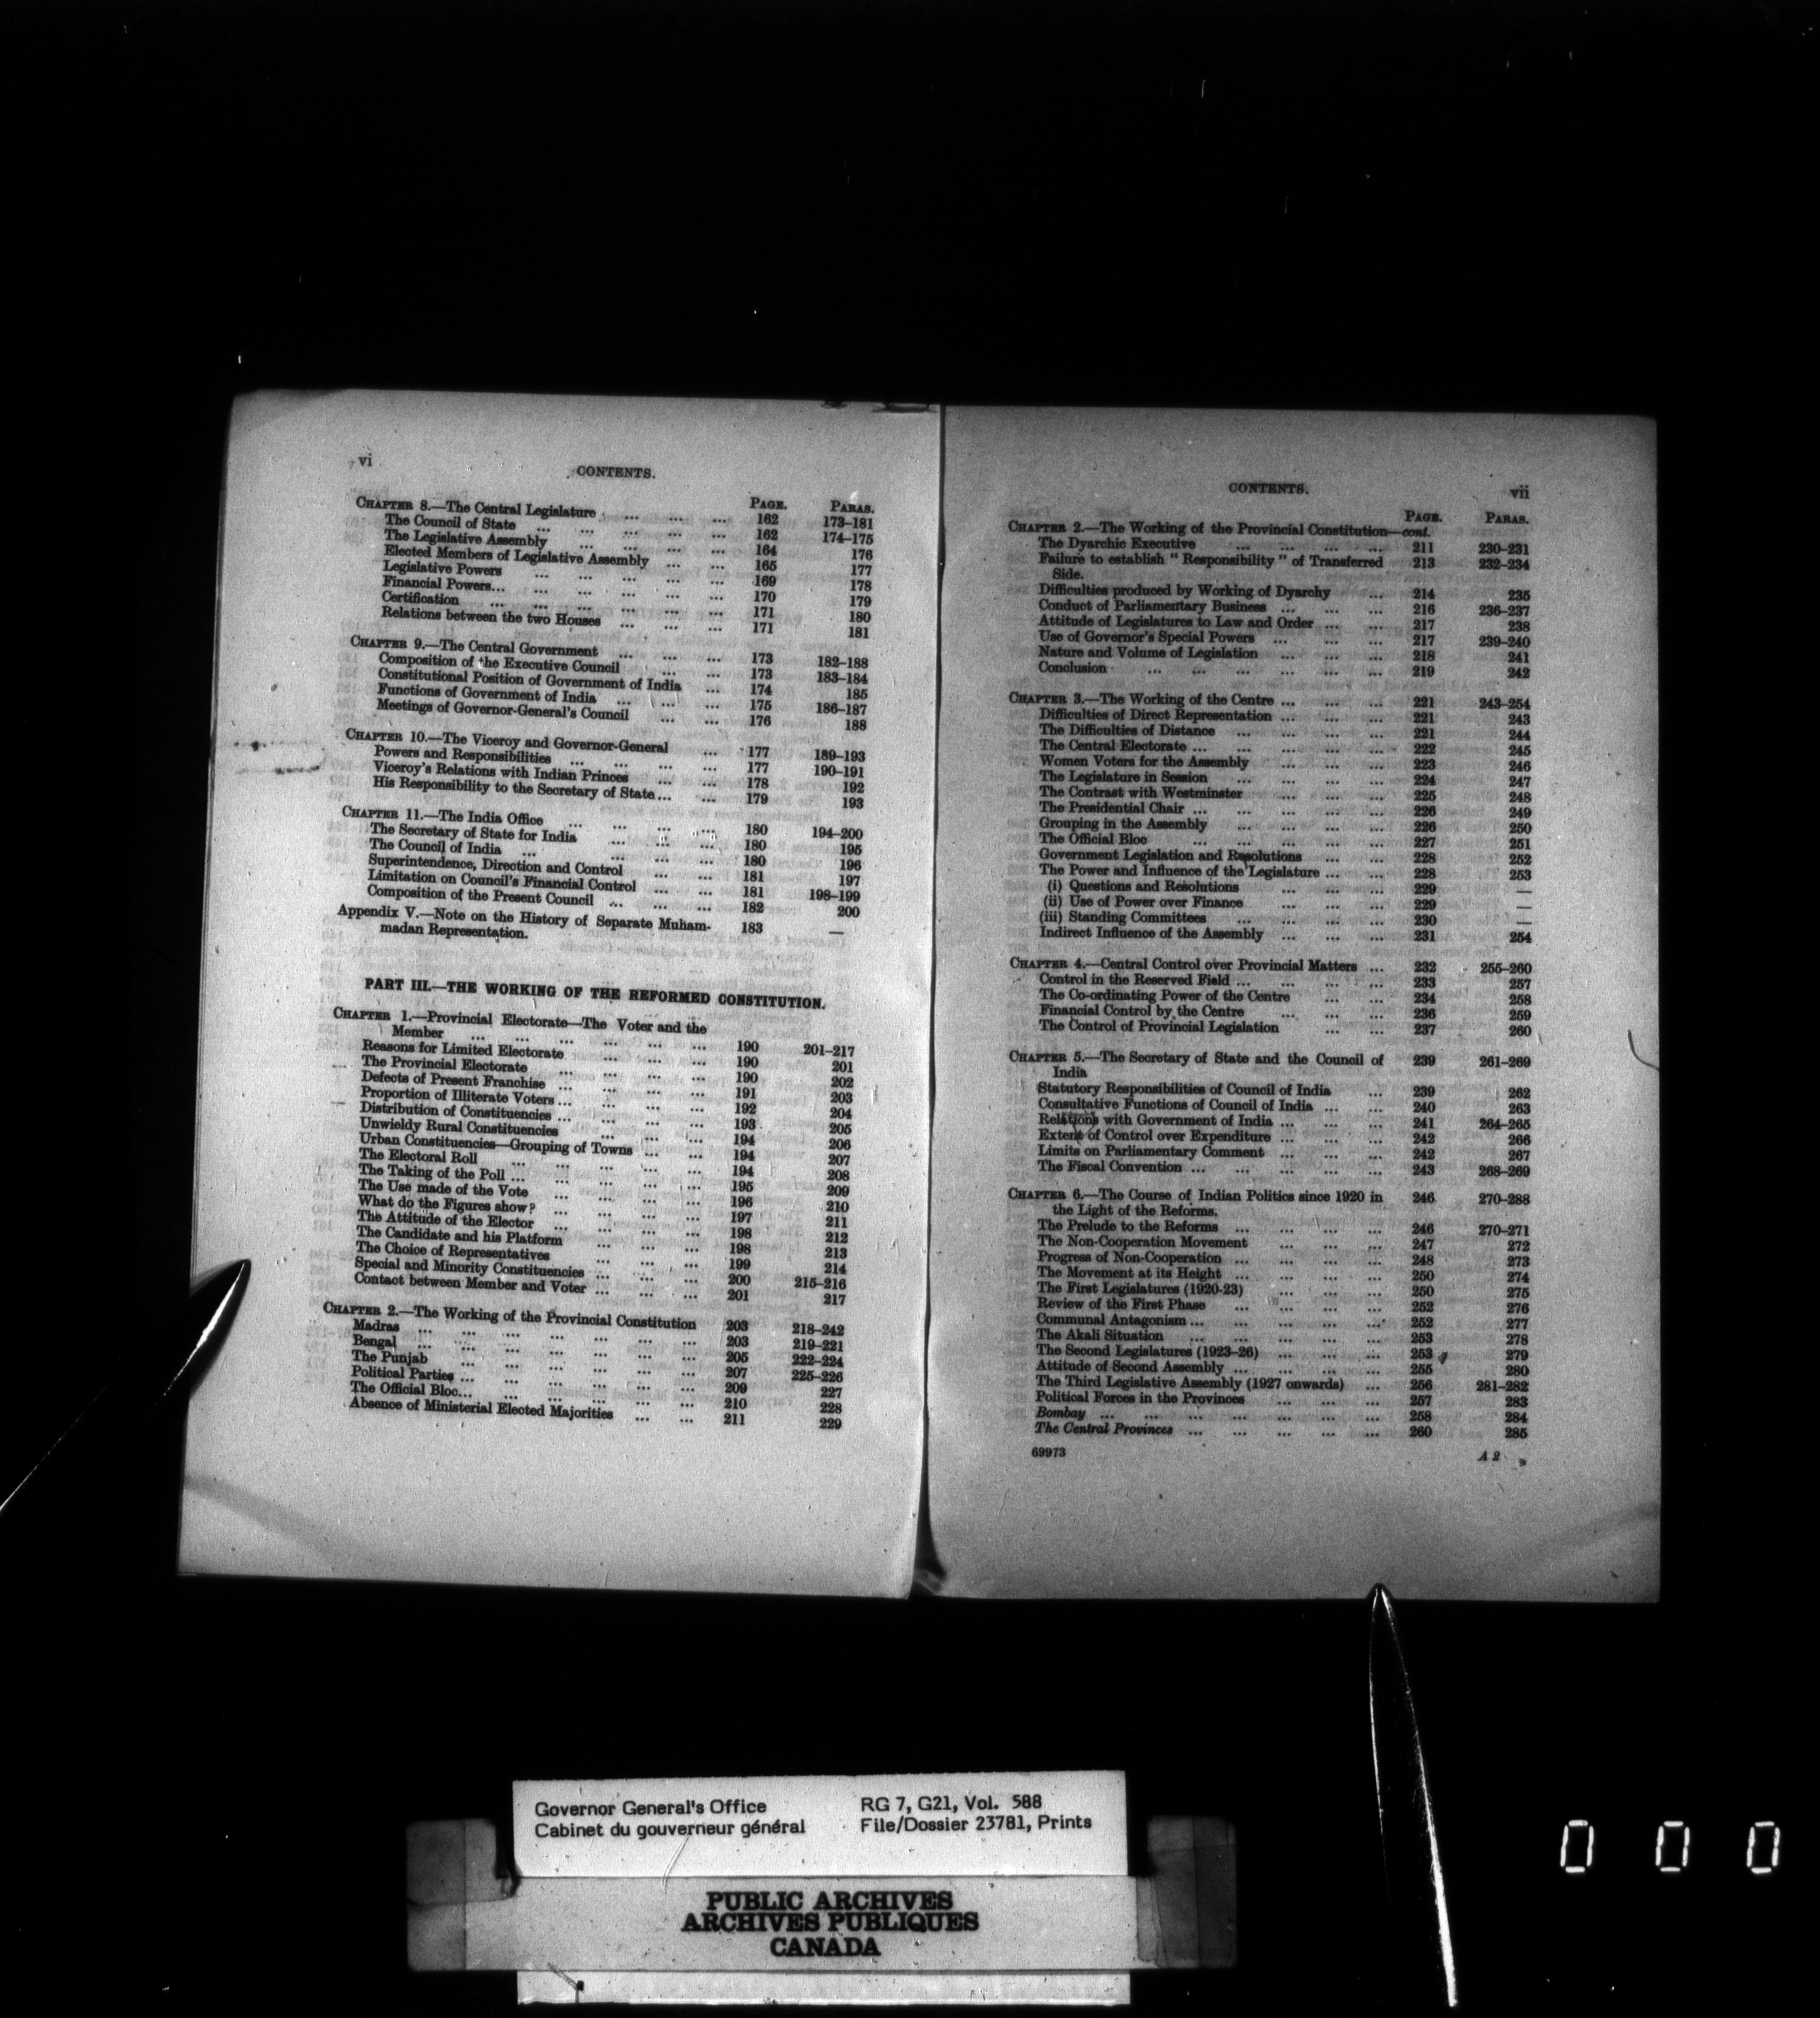 vi
CONTENTS.
PAGE. PARAS.
CHAPTER 8.—The Central Legislature ... ... ... 162 173–181
The Council of State ... ... ... ... ... 162 174–175
The Legislative Assembly ... ... ... ... 164 176
Elected Members of Legislative Assembly ... ... 165 177
Legislative Powers ... ... ... ... ... 169 178
Financial Powers... ... ... ... ... ... 170 179
Certification ... ... ... ... ... ... 171 180
Relations between the two Houses ... ... ... 171 181
CHAPTER 9.—The Central Government ... ... ... 173 182–188
Composition of the Executive Council ... ... 173 183–184
Constitutional Position of Government of India ... 174 185
Functions of Government of India ... ... ... 175 186–187
Meetings of Governor-General's Council ... ... 176 188
CHAPTER 10.—The Viceroy and Governor-General ... 177 189–193
Powers and Responsibilities ... ... ... ... 177 190–191
Viceroy's Relations with Indian Princes ... ... 178 192
His Responsibility to the Secretary of State ... ... 179 193
CHAPTER 11.—The India Office ... ... ... ... 180 194–200
The Secretary of State for India ... ... ... 180 195
The Council of India ... ... ... ... 180 196
Superintendence, Direction and Control ... ... 181 197
Limitation on Council's Financial Control ... ... 181 198–199
Composition of the Present Council ... ... ... 182 200
Appendix V.—Note on the History of Separate Muham- 183 —
madan Representation.
PART III.—THE WORKING OF THE REFORMED CONSTITUTION.
CHAPTER 1.—Provincial Electorate—The Voter and the
Member ... ... ... ... ... ... 190 201–217
Reasons for Limited Electorate ... ... ... 190 201
The Provincial Electorate ... ... ... ... 190 202
Defects of Present Franchise ... ... ... ... 191 203
Proportion of Illiterate Voters ... ... ... ... 192 204
Distribution of Constituencies ... ... ... ... 193 205
Unwieldy Rural Constituencies ... ... ... 194 206
Urban Constituencies—Grouping of Towns ... ... 194 207
The Electoral Roll ... ... ... ... ... 194 208
The Taking of the Poll ... ... ... ... ... 195 209
The Use made of the Vote ... ... ... ... 196 210
What do the Figures show? ... ... ... ... 197 211
The Attitude of the Elector ... ... ... ... 198 212
The Candidate and his Platform ... ... ... 198 213
The Choice of Representatives ... ... ... 199 214
Special and Minority Constituencies ... ... ... 200 215–216
Contact between Member and Voter ... ... ... 201 217
CHAPTER 2.—The Working of the Provincial Constitution 203 218–242
Madras ... ... ... ... ... ... ... 203 219–221
Bengal ... ... ... ... ... ... ... 205 222–224
The Punjab ... ... ... ... ... ... 207 225–226
Political Parties ... ... ... ... ... ... 209 227
The Official Bloc... ... ... ... ... ... 210 228
Absence of Ministerial Elected Majorities ... ... 211 229
CONTENTS. vii
PAGE. PARAS.
CHAPTER 2.—The Working of the Provincial Constitution—cont.
The Dyarchic Executive ... ... ... ... 211 230–231
Failure to establish " Responsibility " of Transferred 213 232–234
Side.
Difficulties produced by Working of Dyarchy ... 214 235
Conduct of Parliamentary Business ... ... ... 216 236–237
Attitude of Legislatures to Law and Order ... ... 217 238
Use of Governor's Special Powers ... ... ... 217 239–240
Nature and Volume of Legislation ... ... ... 218 241
Conclusion ... ... ... ... ... ... 219 242
CHAPTER 3.—The Working of the Centre ... ... ... 221 243–254
Difficulties of Direct Representation ... ... ... 221 243
The Difficulties of Distance ... ... ... ... 221 244
The Central Electorate ... ... ... ... ... 222 245
Women Voters for the Assembly ... ... ... 223 246
The Legislature in Session ... ... ... ... 224 247
The Contrast with Westminster ... ... ... 225 248
The Presidential Chair ... ... ... ... ... 226 249
Grouping in the Assembly ... ... ... ... 226 250
The Official Bloc ... ... ... ... ... 227 251
Government Legislation and Resolutions ... ... 228 252
The Power and Influence of the Legislature ... ... 228 253
(i) Questions and Resolutions ... ... ... 229 —
(ii) Use of Power over Finance ... ... ... 229 —
(iii) Standing Committees ... ... ... ... 230 —
Indirect Influence of the Assembly ... ... ... 231 254
CHAPTER 4.—Central Control over Provincial Matters ... 232 255–260
Control in the Reserved Field ... ... ... ... 233 257
The Co-ordinating Power of the Centre ... ... 234 258
Financial Control by the Centre ... ... ... 236 259
The Control of Provincial Legislation ... ... 237 260
CHAPTER 5.—The Secretary of State and the Council of 239 261–269
India
Statutory Responsibilities of Council of India ... 239 262
Consultative Functions of Council of India ... ... 240 263
Relations with Government of India ... ... ... 241 264–265
Extent of Control over Expenditure ... ... ... 242 266
Limits on Parliamentary Comment ... ... ... 242 267
The Fiscal Convention ... ... ... ... ... 243 268–269
CHAPTER 6.—The Course of Indian Politics since 1920 in 246 270–288
the Light of the Reforms.
The Prelude to the Reforms ... ... ... ... 246 270–271
The Non-Cooperation Movement ... ... ... 247 272
Progress of Non-Cooperation ... ... ... ... 248 273
The Movement at its Height ... ... ... ... 250 274
The First Legislatures (1920-23) ... ... ... 250 275
Review of the First Phase ... ... ... ... 252 276
Communal Antagonism ... ... ... ... ... 252 277
The Akali Situation ... ... ... ... ... 253 278
The Second Legislatures (1923–26) ... ... ... 253 279
Attitude of Second Assembly ... ... ... ... 255 280
The Third Legislative Assembly (1927 onwards) ... 256 281–282
Political Forces in the Provinces ... ... ... 257 283
Bombay ... ... ... ... ... ... ... 258 284
The Central Provinces ... ... ... ... ... 260 285
69973 A 2
Governor General's Office RG 7, G21, Vol. 588
Cabinet du gouverneur général File/Dossier 23781, Prints
PUBLIC ARCHIVES
ARCHIVES PUBLIQUES
CANADA
0 0 0